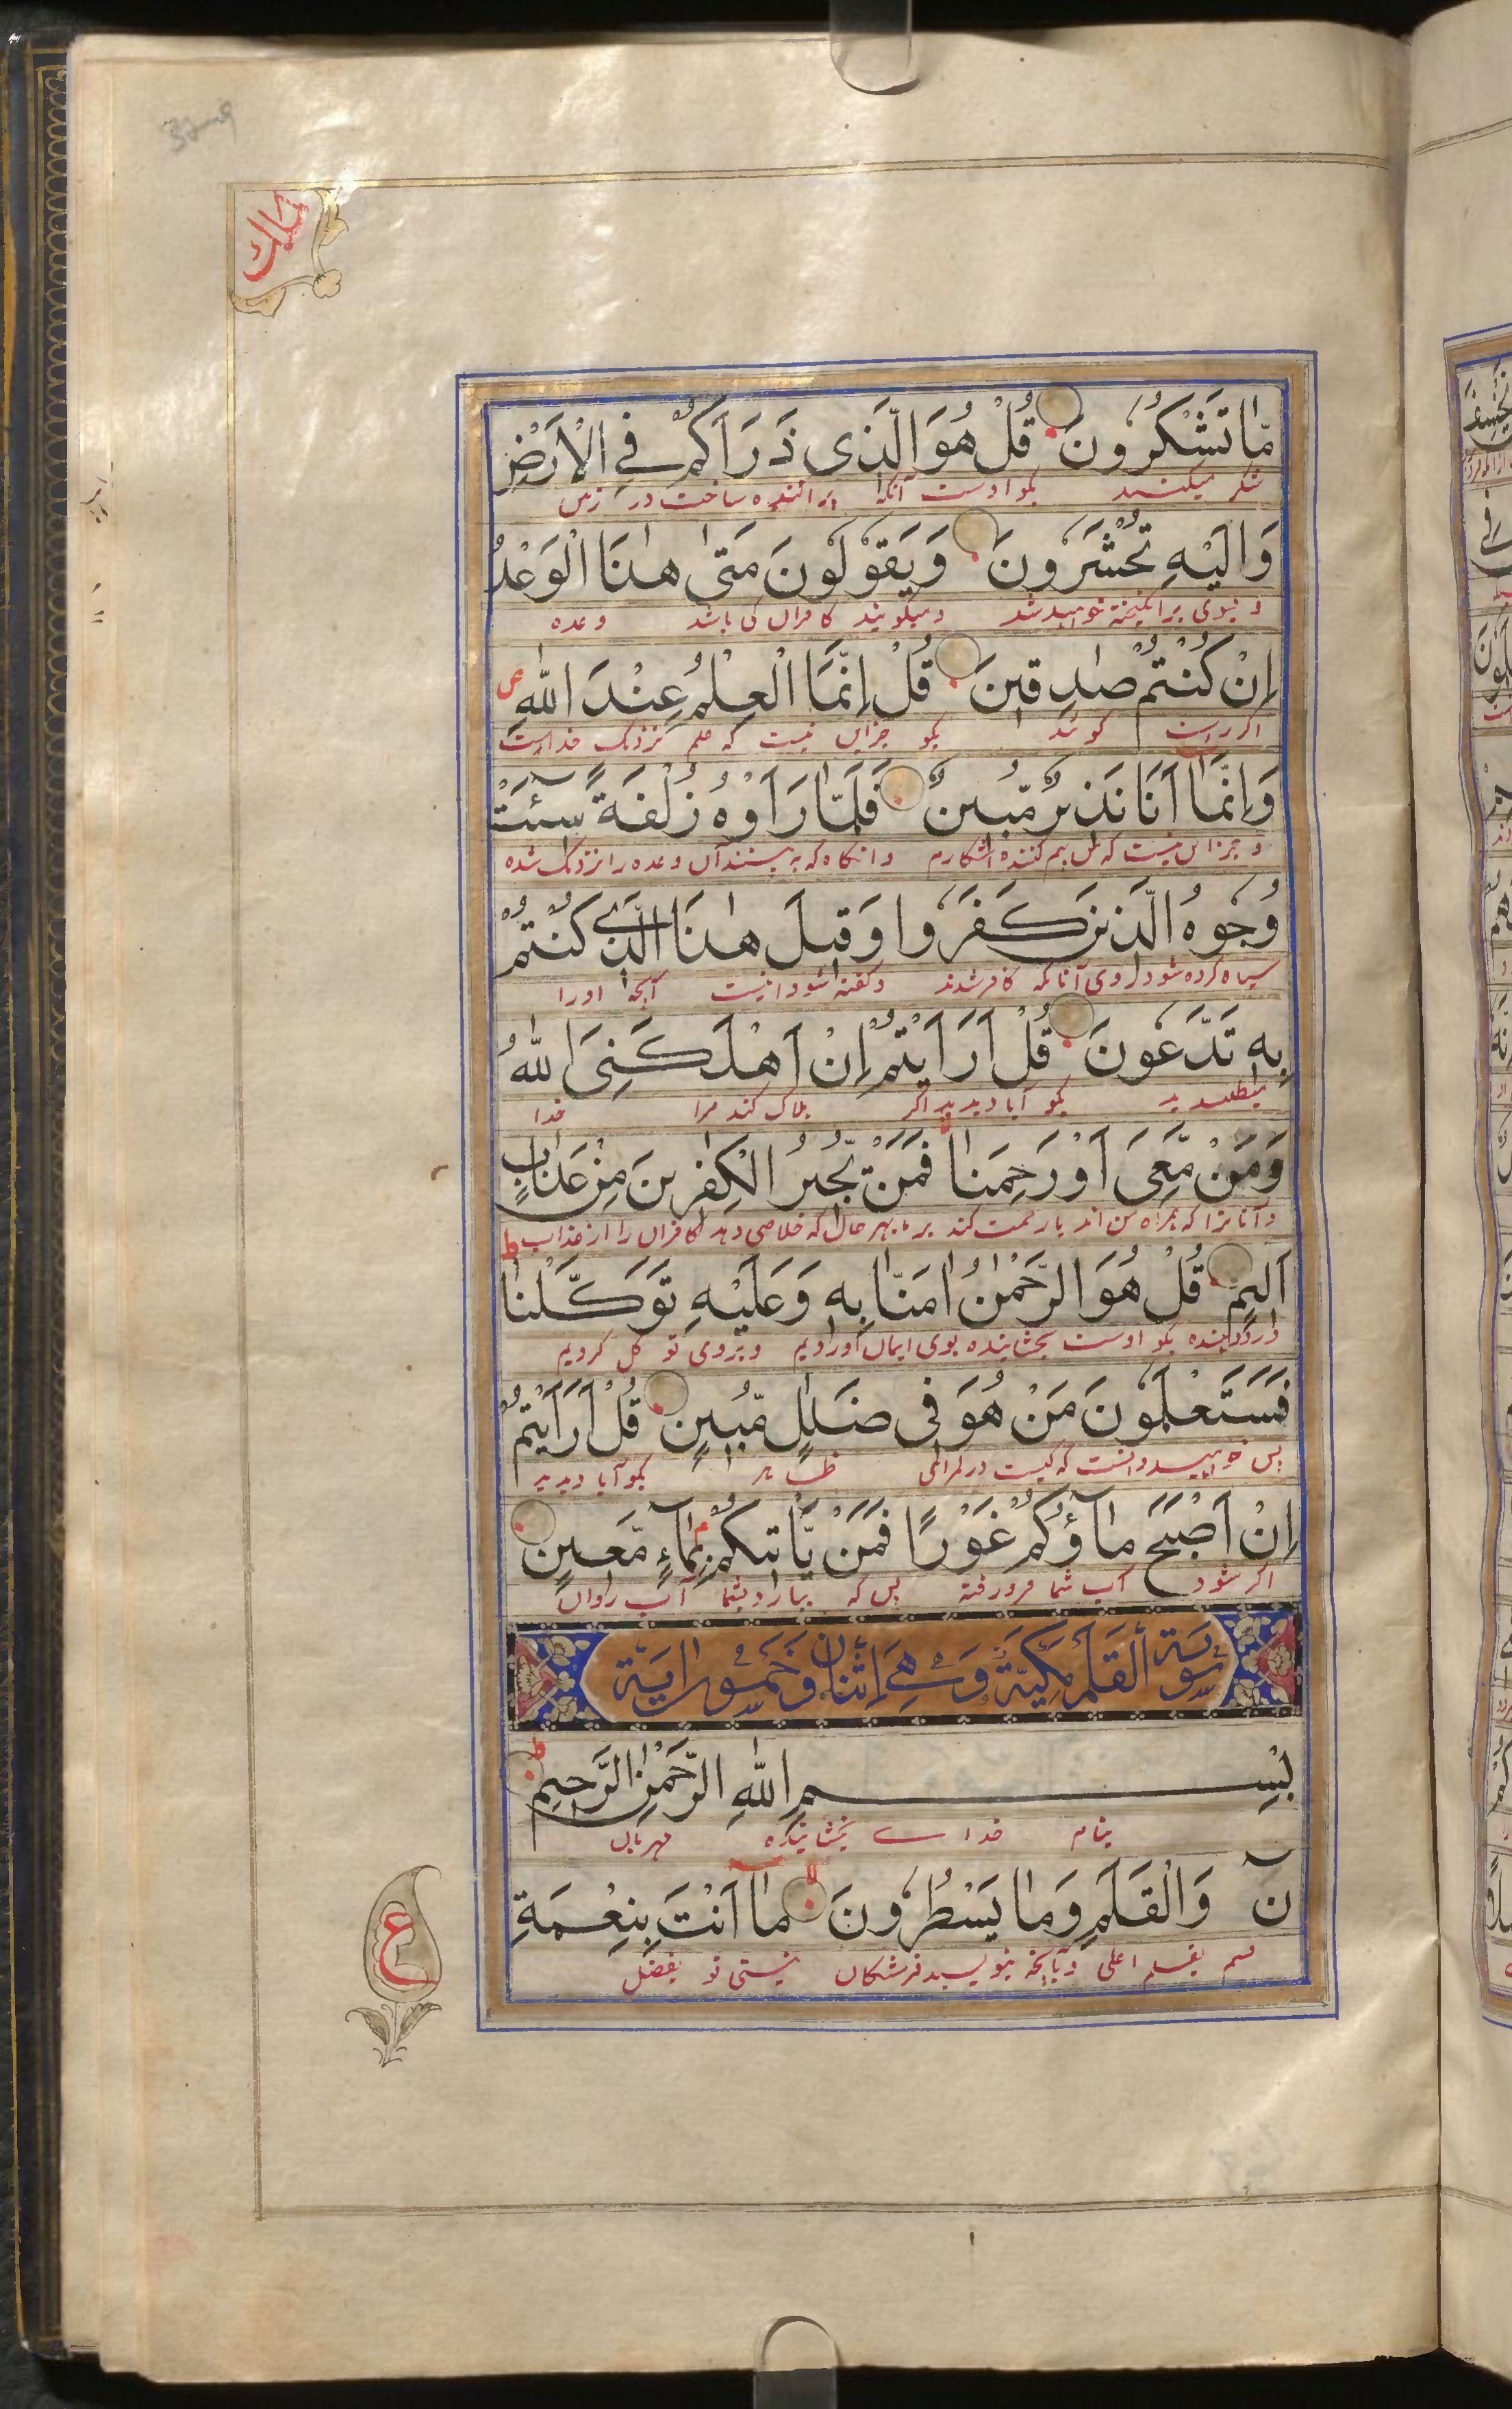 ملك
مَّا تَشْكُرُونَ قُلْ هُوَ الَّذِى ذَرَاَكُمْ فِى الْاَرْضِ
شکر میکنید بکو اوست آنکه پراکنده ساخت در زمین
وَاِلَيْهِ تُحْشَرُونَ وَيَقُوْلُوْنَ مَتٰى هٰذَا الْوَعْدُ
و بسوی برانکیخته خواهید شد و میکویند کافران کی باشد وعده
اِنْ كُنْتُمْ صٰدِقِيْنَ قُلْ اِنَّمَا الْعِلْمُ عِنْدَ اللّٰهِ ص
اکر راست کوئید بکو جزاین نیست که علم نزدیک خداست
وَاِنَّمَا اَنَا نَذِيْرٌ مُّبِيْنٌ فَلَمَّا رَاَوْهُ زُلْفَةً سِيْٓئَتْ
و جزاین نیست که من بیم کننده آشکارم و انکاه که به بینند آن وعده را نزدیک شده
وُجُوْهُ الَّذِيْنَ كَفَرُوْا وَقِيْلَ هٰذَا الَّذِىْ كُنْتُمْ
سیاه کرده شود روی آنانکه کافر شدند و کفته شود اینست آنچه اورا
بِهٖ تَدَّعُوْنَ قُلْ اَرَاَيْتُمْ اِنْ اَهْلَكَنِىَ اللّٰهُ
میطلبیدید بکو آیا دیدید اکر هلاک کند مرا خدا
وَمَنْ مَّعِىَ اَوْ رَحِمَنَا فَمَنْ يُّجِيْرُ الْكٰفِرِيْنَ مِنْ عَذَابٍ
و آنانرا که همراه من اند یا رحمت کند بر ما بهر حال که خلاصی دهد کافران را از عذاب ط
اَلِيْمٍ قُلْ هُوَ الرَّحْمٰنُ اٰمَنَّا بِهٖ وَعَلَيْهِ تَوَكَّلْنَا
درد دهنده بکو اوست بخشاینده بوی ایمان آوردیم و بروی توکل کردیم
فَسَتَعْلَمُوْنَ مَنْ هُوَ فِىْ ضَلٰلٍ مُّبِيْنٍ قُلْ اَرَاَيْتُمْ
پس خواهید دانست که کیست در کمراهی ظاهر بکو آیا دیدید
اِنْ اَصْبَحَ مَآؤُكُمْ غَوْرًا فَمَنْ يَّاْتِيْكُمْ بِمَآءٍ مَّعِيْنٍ
اکر شود آب شما فرو رفته پس که بیارد بشما آب روان
سُوْرَةُ الْقَلَمِ مَكِّيَّةٌ وَّهِىَ اِثْنَانِ وَخَمْسُوْنَ اٰيَة
بِسْمِ اللّٰهِ الرَّحْمٰنِ الرَّحِيْمِ ط
بنام خداے بخشاینده مهربان
نٓ وَالْقَلَمِ وَمَا يَسْطُرُوْنَ لا مَآ اَنْتَ بِنِعْمَةِ
قسم بقلم اعلی و بآنچه بنویسند فرشتکان نیستی تو بفضل
ع